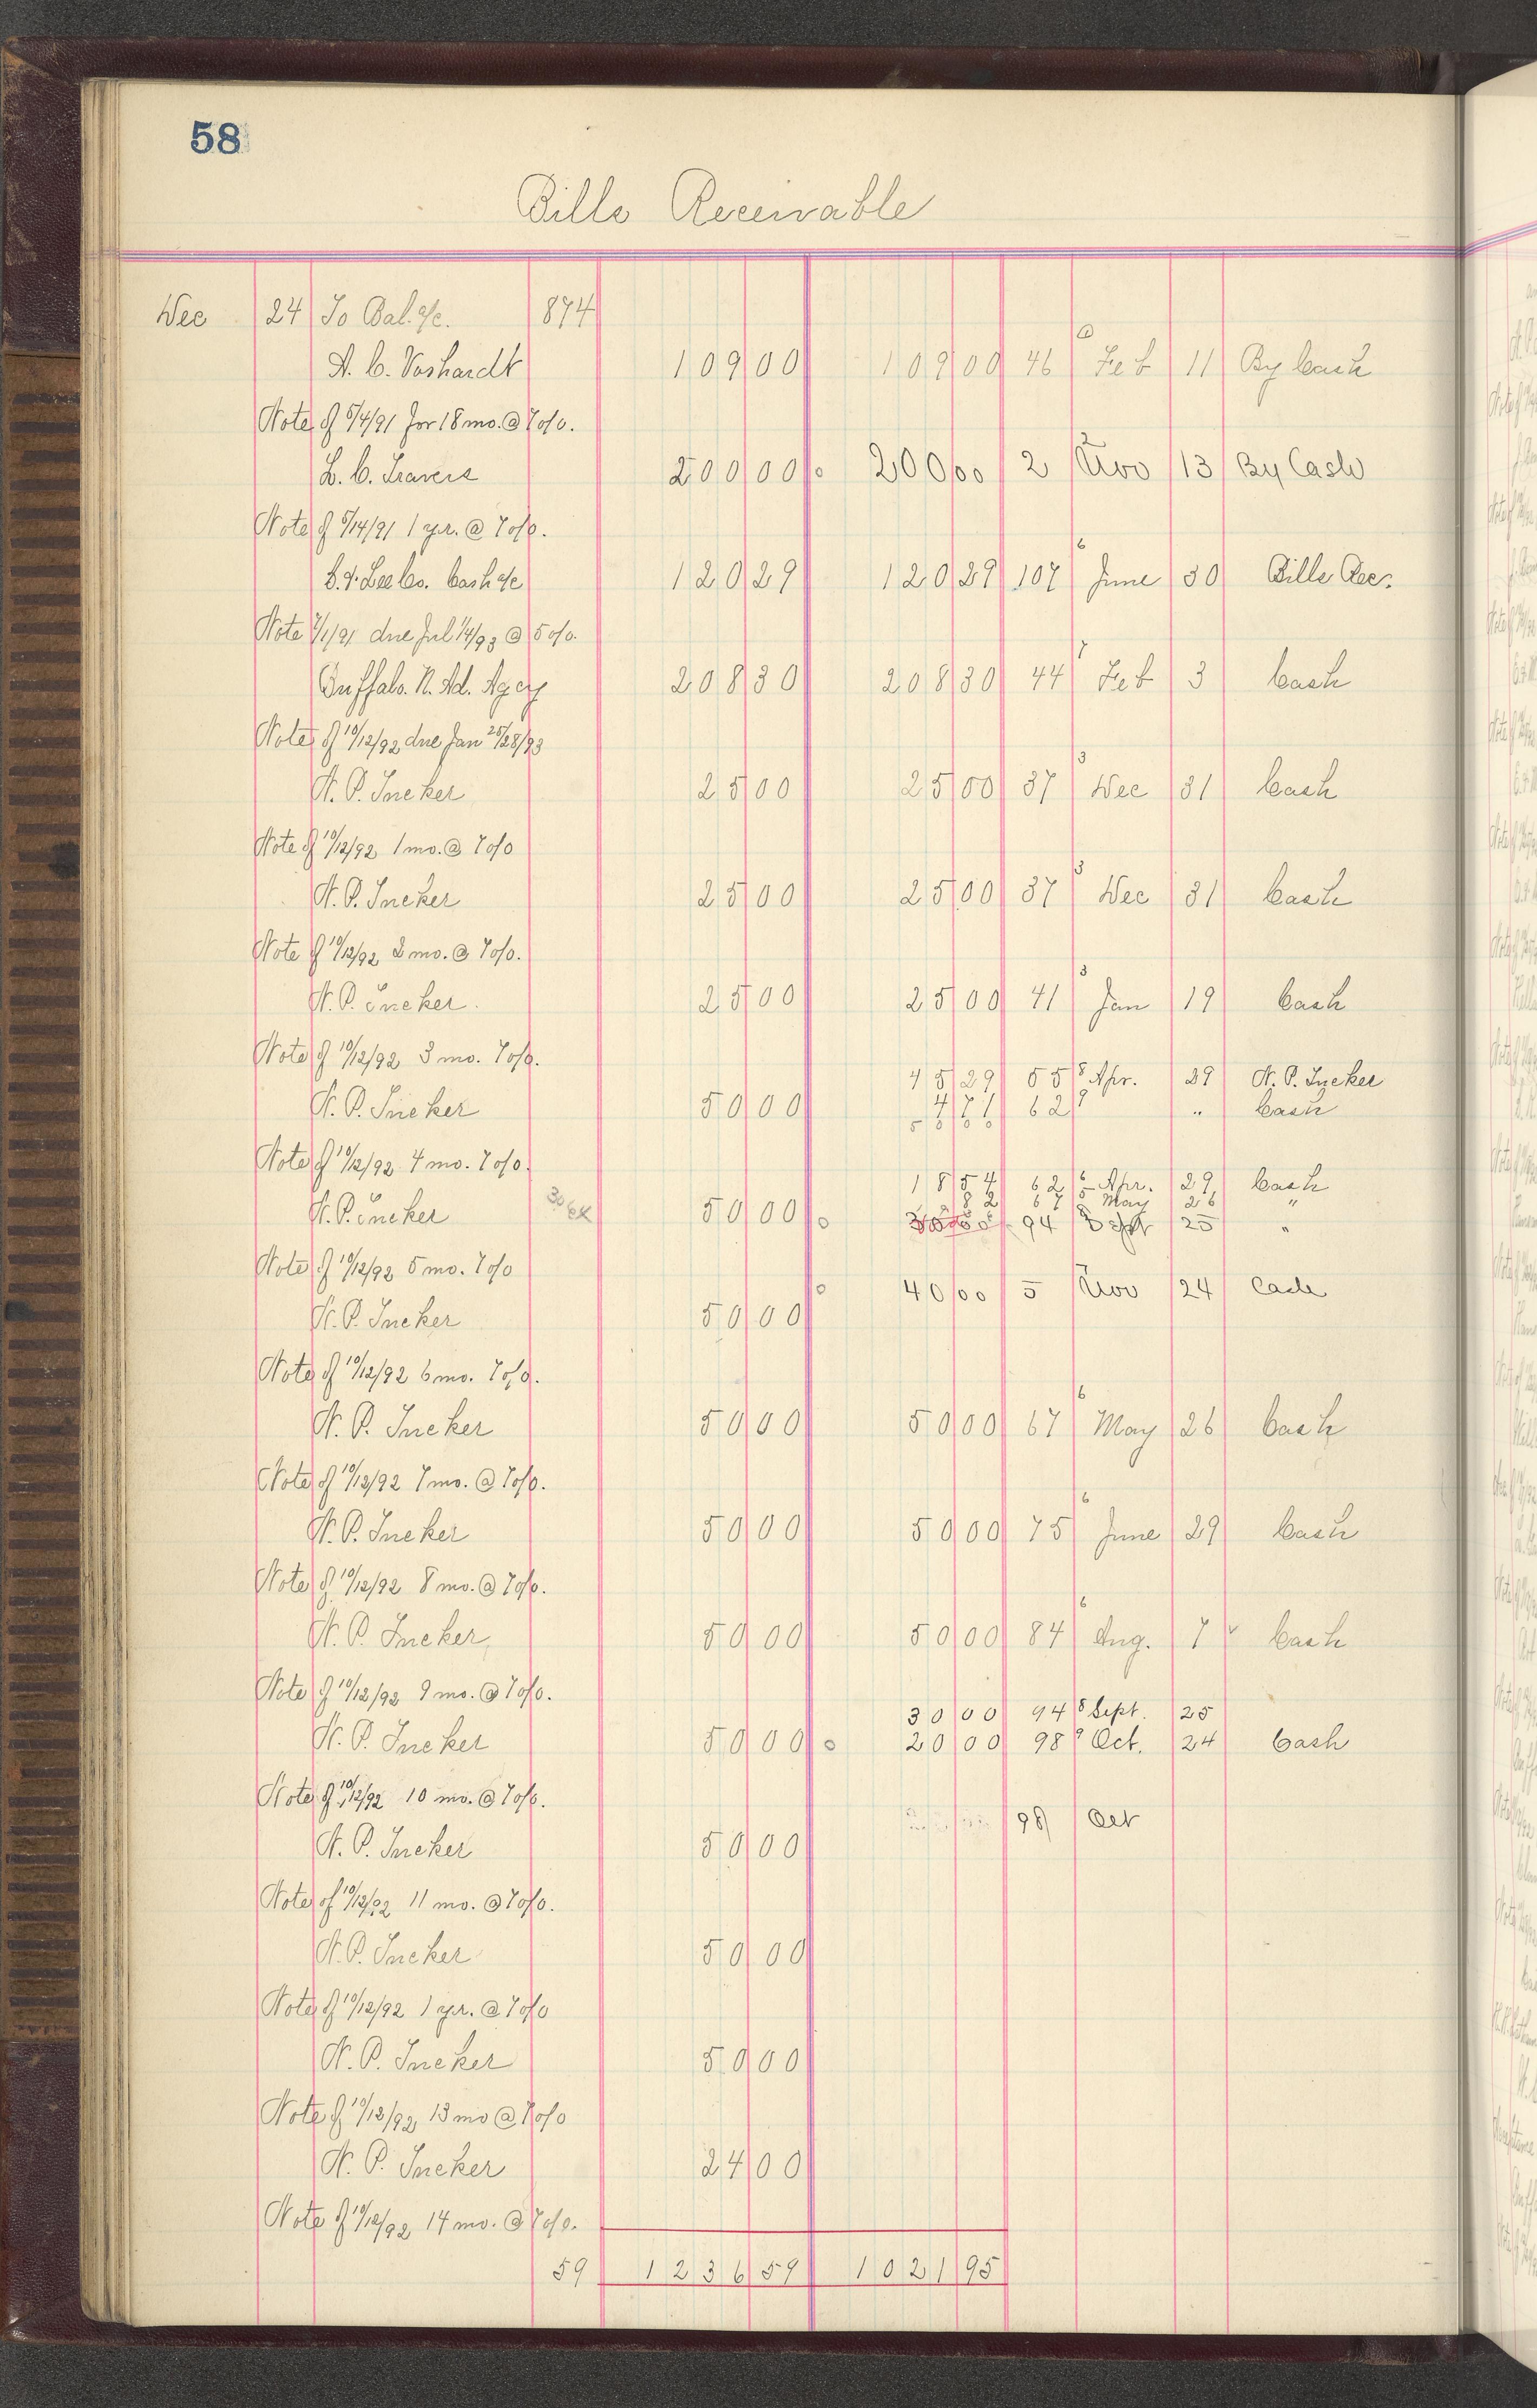 58
Bills Receivable
Dec 24 To Bal. a/c. 874
A. C. Voshardt 109 00 109 00 46 Feb 11 By Cash
Note of 5/4/91 for 18 mo. @ 7o/o.
L. C. Travers 200 00 200 00 2 Nov 13 By Cash
Note of 5/14/91 1 yr. @ 7o/o.
Lee Co. Cash a/c 120 29 120 29 107 6 June 30 Bills Rec.
Note 7/1/91 due Jul 1/4/93 @ 5o/o.
Buffalo N. Ad. Agcy 208 30 208 30 44 7 Feb 3 Cash
Note of 10/12/92 due Jan 25/28/93
N. P. Incker 25 00 25 00 37 3 Dec 31 Cash
Note of 10/12/92 1 mo. @ 7o/o
N. P. Incker 25 00 25 00 37 3 Dec 31 Cash
Note of 10/12/92 2 mo. @ 7o/o.
N. P. Incker 25 00 25 00 41 3 Jan 19 Cash
Note of 10/12/92 3 mo. 7o/o.
45 29 55 8 Apr. 29 N. P. Incker
N. P. Incker 50 00 4 71 62 9 " Cash
50 00
Note of 10/12/92 4 mo. 7o/o.
18 54 62 Apr. 29 Cash
82 67 5 May 26 "
N. P. Incker 50 00 94 Sept 25 "
Note of 10/12/92 5 mo. 7o/o
40 00 5 Nov 24 Cash
N. P. Incker 50 00
Note of 10/12/92 6 mo. 7o/o.
N. P. Incker 50 00 50 00 67 6 May 26 Cash
Note of 10/12/92 7 mo. @ 7o/o.
N. P. Incker 50 00 50 00 75 6 June 29 Cash
Note of 10/12/92 8 mo. @ 7o/o.
N. P. Incker 50 00 50 00 84 6 Aug. 7 Cash
Note of 10/12/92 9 mo. @ 7o/o.
30 00 94 8 Sept. 25
N. P. Incker 50 00 20 00 98 9 Oct. 24 Cash
Note of 10/12/92 10 mo. @ 7o/o.
98 Oct
N. P. Incker 50 00
Note of 10/12/92 11 mo. @ 7o/o.
N. P. Incker 50 00
Note of 10/12/92 1 yr. @ 7o/o
N. P. Incker 50 00
Note of 10/12/92 13 mo @ 7o/o
N. P. Incker 24 00
Note of 10/12/92 14 mo. @ 7o/o.
59 1236 59 1021 95